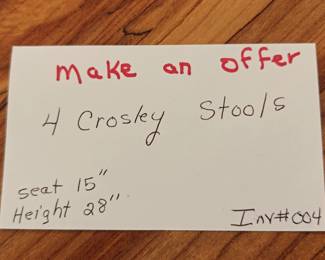 Make an offer
4 Crosley Stools
seat 15"
Height 28"
Inv#004